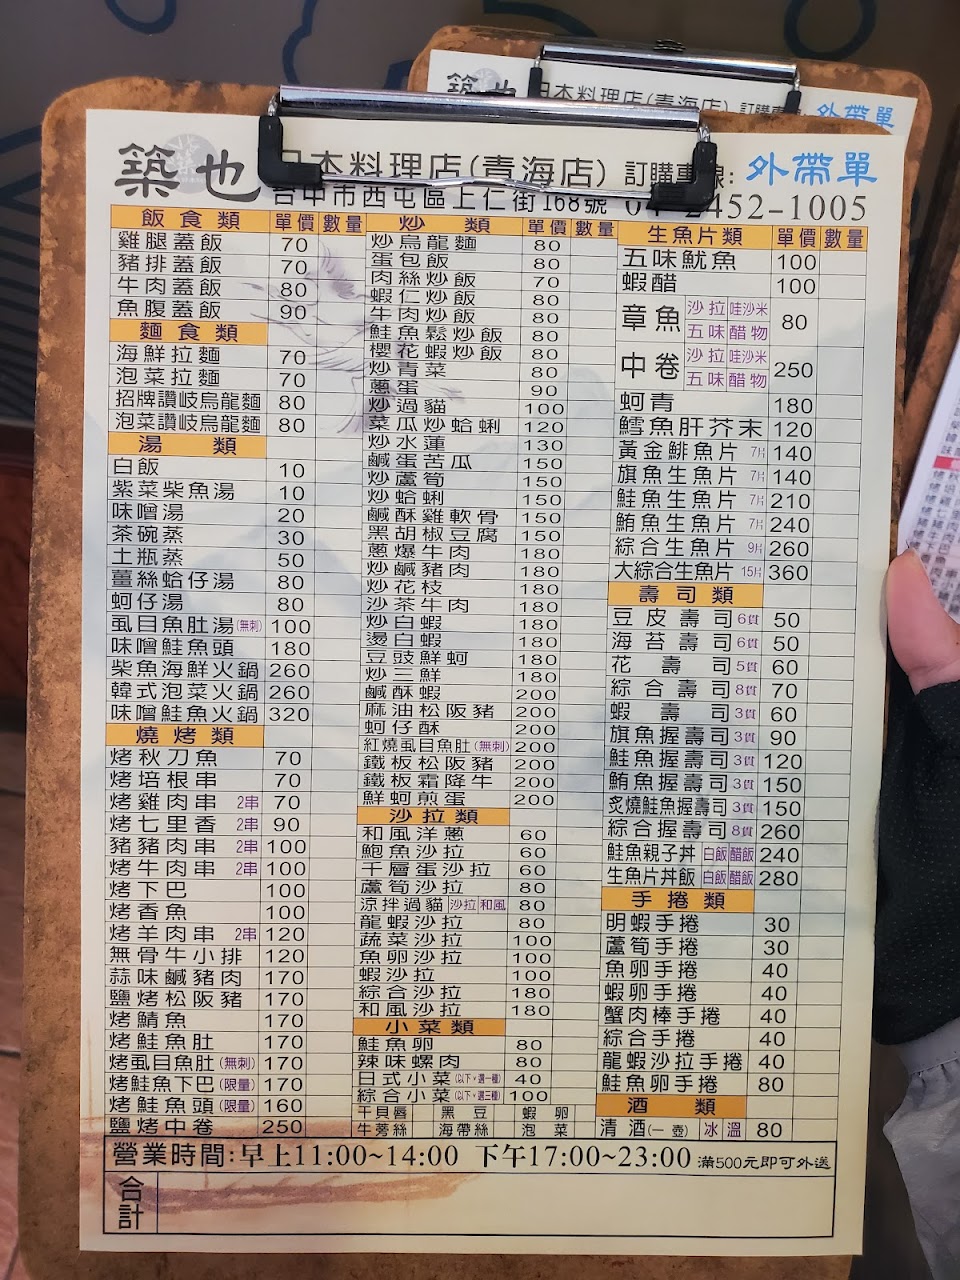 築也 日本料理店(青海店) 訂購專線: 外帶單
台中市西屯區上仁街168號 04-2452-1005
飯食類 單價 數量
雞腿蓋飯 70
豬排蓋飯 70
牛肉蓋飯 80
魚腹蓋飯 90
麵食類
海鮮拉麵 70
泡菜拉麵 70
招牌讚岐烏龍麵 80
泡菜讚岐烏龍麵 80
湯類
白飯 10
紫菜柴魚湯 10
味噌湯 20
茶碗蒸 30
土瓶蒸 50
薑絲蛤仔湯 80
蚵仔湯 80
虱目魚肚湯(無刺) 100
味噌鮭魚頭 180
柴魚海鮮火鍋 260
韓式泡菜火鍋 260
味噌鮭魚火鍋 320
燒烤類
烤秋刀魚 70
烤培根串 70
烤雞肉串 2串 70
烤七里香 2串 90
豬豬肉串 2串 100
烤牛肉串 2串 100
烤下巴 100
烤香魚 100
烤羊肉串 2串 120
無骨牛小排 120
蒜味鹹豬肉 170
鹽烤松阪豬 170
烤鯖魚 170
烤鮭魚肚 170
烤虱目魚肚(無刺) 170
烤鮭魚下巴(限量) 170
烤鮭魚頭(限量) 160
鹽烤中卷 250
炒類 單價 數量
炒烏龍麵 80
蛋包飯 80
肉絲炒飯 70
蝦仁炒飯 80
牛肉炒飯 80
鮭魚鬆炒飯 80
櫻花蝦炒飯 80
炒青菜 80
蔥蛋 90
炒過貓 100
菜瓜炒蛤蜊 120
炒水蓮 130
鹹蛋苦瓜 150
炒蘆筍 150
炒蛤蜊 150
鹹酥雞軟骨 150
黑胡椒豆腐 150
蔥爆牛肉 180
炒鹹豬肉 180
炒花枝 180
沙茶牛肉 180
炒白蝦 180
燙白蝦 180
豆豉鮮蚵 180
炒三鮮 180
鹹酥蝦 200
麻油松阪豬 200
蚵仔酥 200
紅燒虱目魚肚(無刺) 200
鐵板松阪豬 200
鐵板霜降牛 200
鮮蚵煎蛋 200
沙拉類
和風洋蔥 60
鮑魚沙拉 60
千層蛋沙拉 60
蘆筍沙拉 80
涼拌過貓 沙拉 和風 80
龍蝦沙拉 80
蔬菜沙拉 100
魚卵沙拉 100
蝦沙拉 100
綜合沙拉 180
和風沙拉 180
小菜類
鮭魚卵 80
辣味螺肉 80
日式小菜(以下,選一種) 40
綜合小菜(以下,選三種) 100
干貝唇 黑豆 蝦卵
牛蒡絲 海帶絲 泡菜
生魚片類 單價 數量
五味魷魚 100
蝦醋 100
章魚 沙拉 哇沙米 五味 醋物 80
中卷 沙拉 哇沙米 五味 醋物 250
蚵青 180
鱈魚肝芥末 120
黃金鯡魚片 7片 140
旗魚生魚片 7片 140
鮭魚生魚片 7片 210
鮪魚生魚片 7片 240
綜合生魚片 9片 260
大綜合生魚片 15片 360
壽司類
豆皮壽司 6貫 50
海苔壽司 6貫 50
花壽司 5貫 60
綜合壽司 8貫 70
蝦壽司 3貫 60
旗魚握壽司 3貫 90
鮭魚握壽司 3貫 120
鮪魚握壽司 3貫 150
炙燒鮭魚握壽司 3貫 150
綜合握壽司 8貫 260
鮭魚親子丼 白飯 醋飯 240
生魚片丼飯 白飯 醋飯 280
手捲類
明蝦手捲 30
蘆筍手捲 30
魚卵手捲 40
蝦卵手捲 40
蟹肉棒手捲 40
綜合手捲 40
龍蝦沙拉手捲 40
鮭魚卵手捲 80
酒類
清酒(一壺) 冰 溫 80
營業時間:早上11:00~14:00 下午17:00~23:00 滿500元即可外送
合計
築也 日本料理店(青海店) 訂購專線: 外帶單